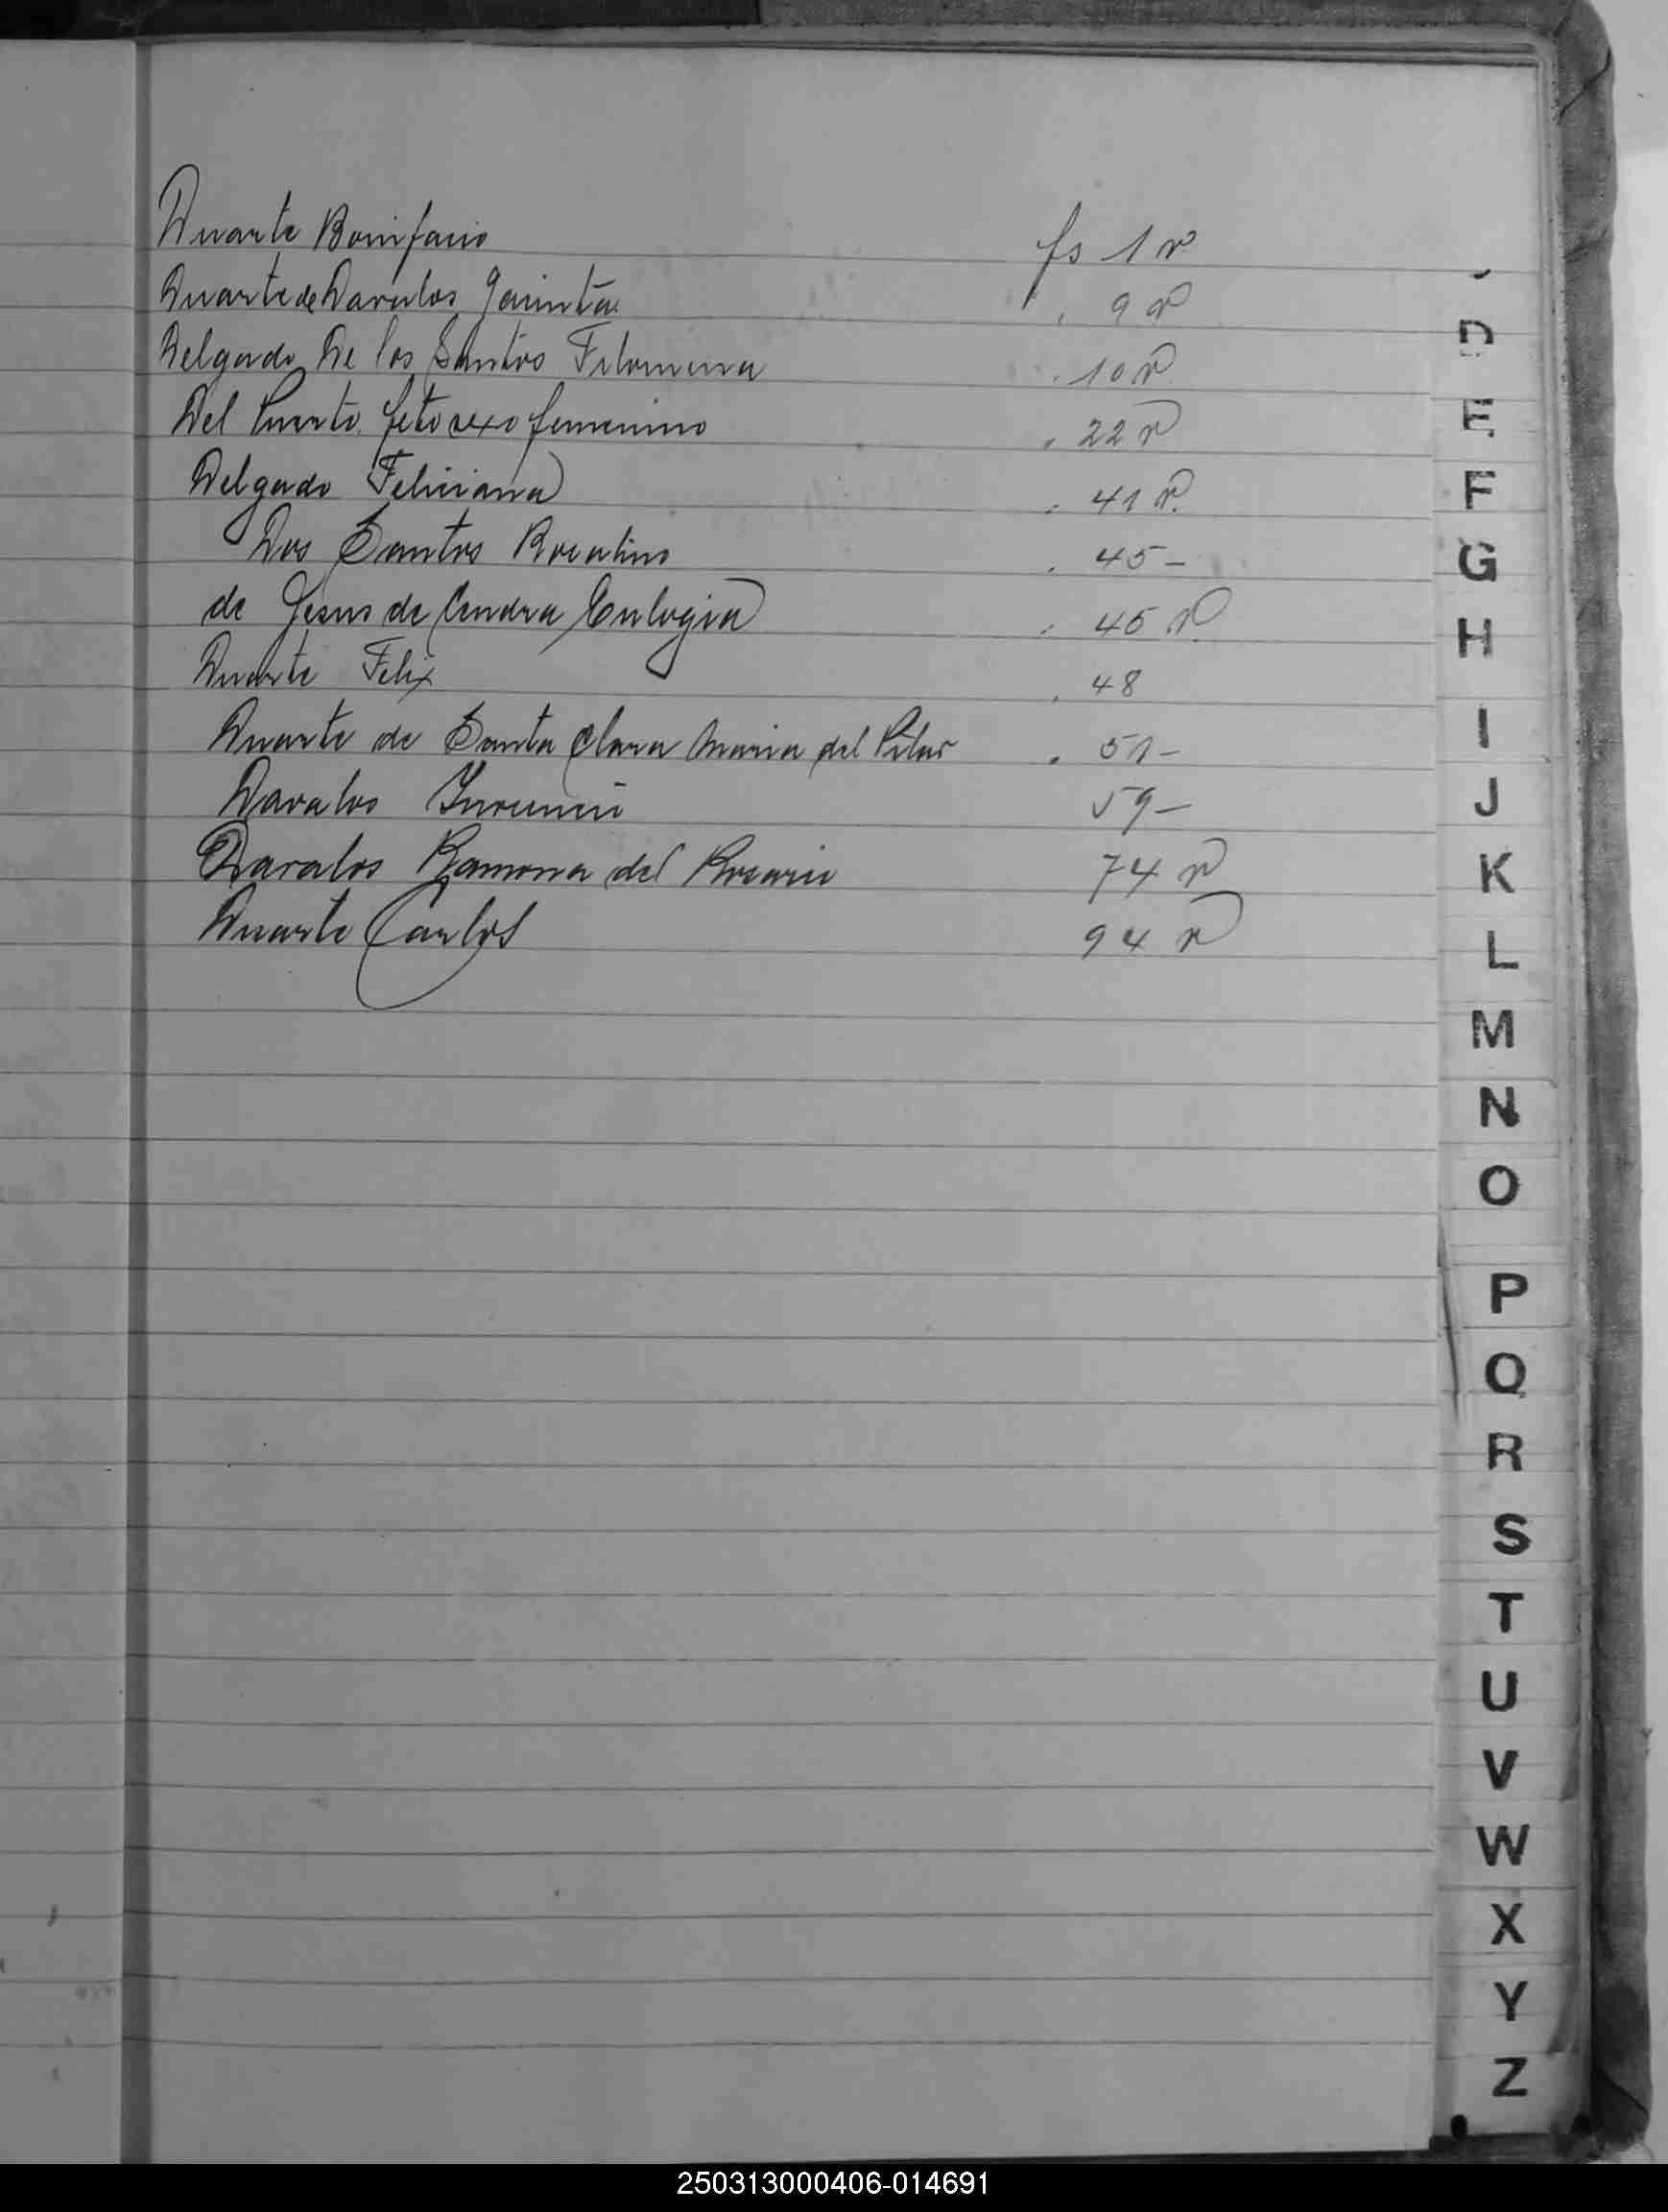 Duarte Bonifacio fs 1 v
Duarte de Davalos Jacinta . 9 v
Delgado De los Santos Filomena . 10 v
Del Puerto feto sexo femenino . 22 v
Delgado Feliciana . 41 v
Dos Santos Rosalino . 45 –
de Jesus de Cendra Eulogia . 45 v
Duarte Felix . 48
Duarte de Santa Clara Maria del Pilar . 51 –
Davalos 59 –
Davalos Ramona del Rosario 74 v
Duarte Carlos 94 v
D
E
F
G
H
I
J
K
L
M
N
O
P
Q
R
S
T
U
V
W
X
Y
Z
250313000406-014691